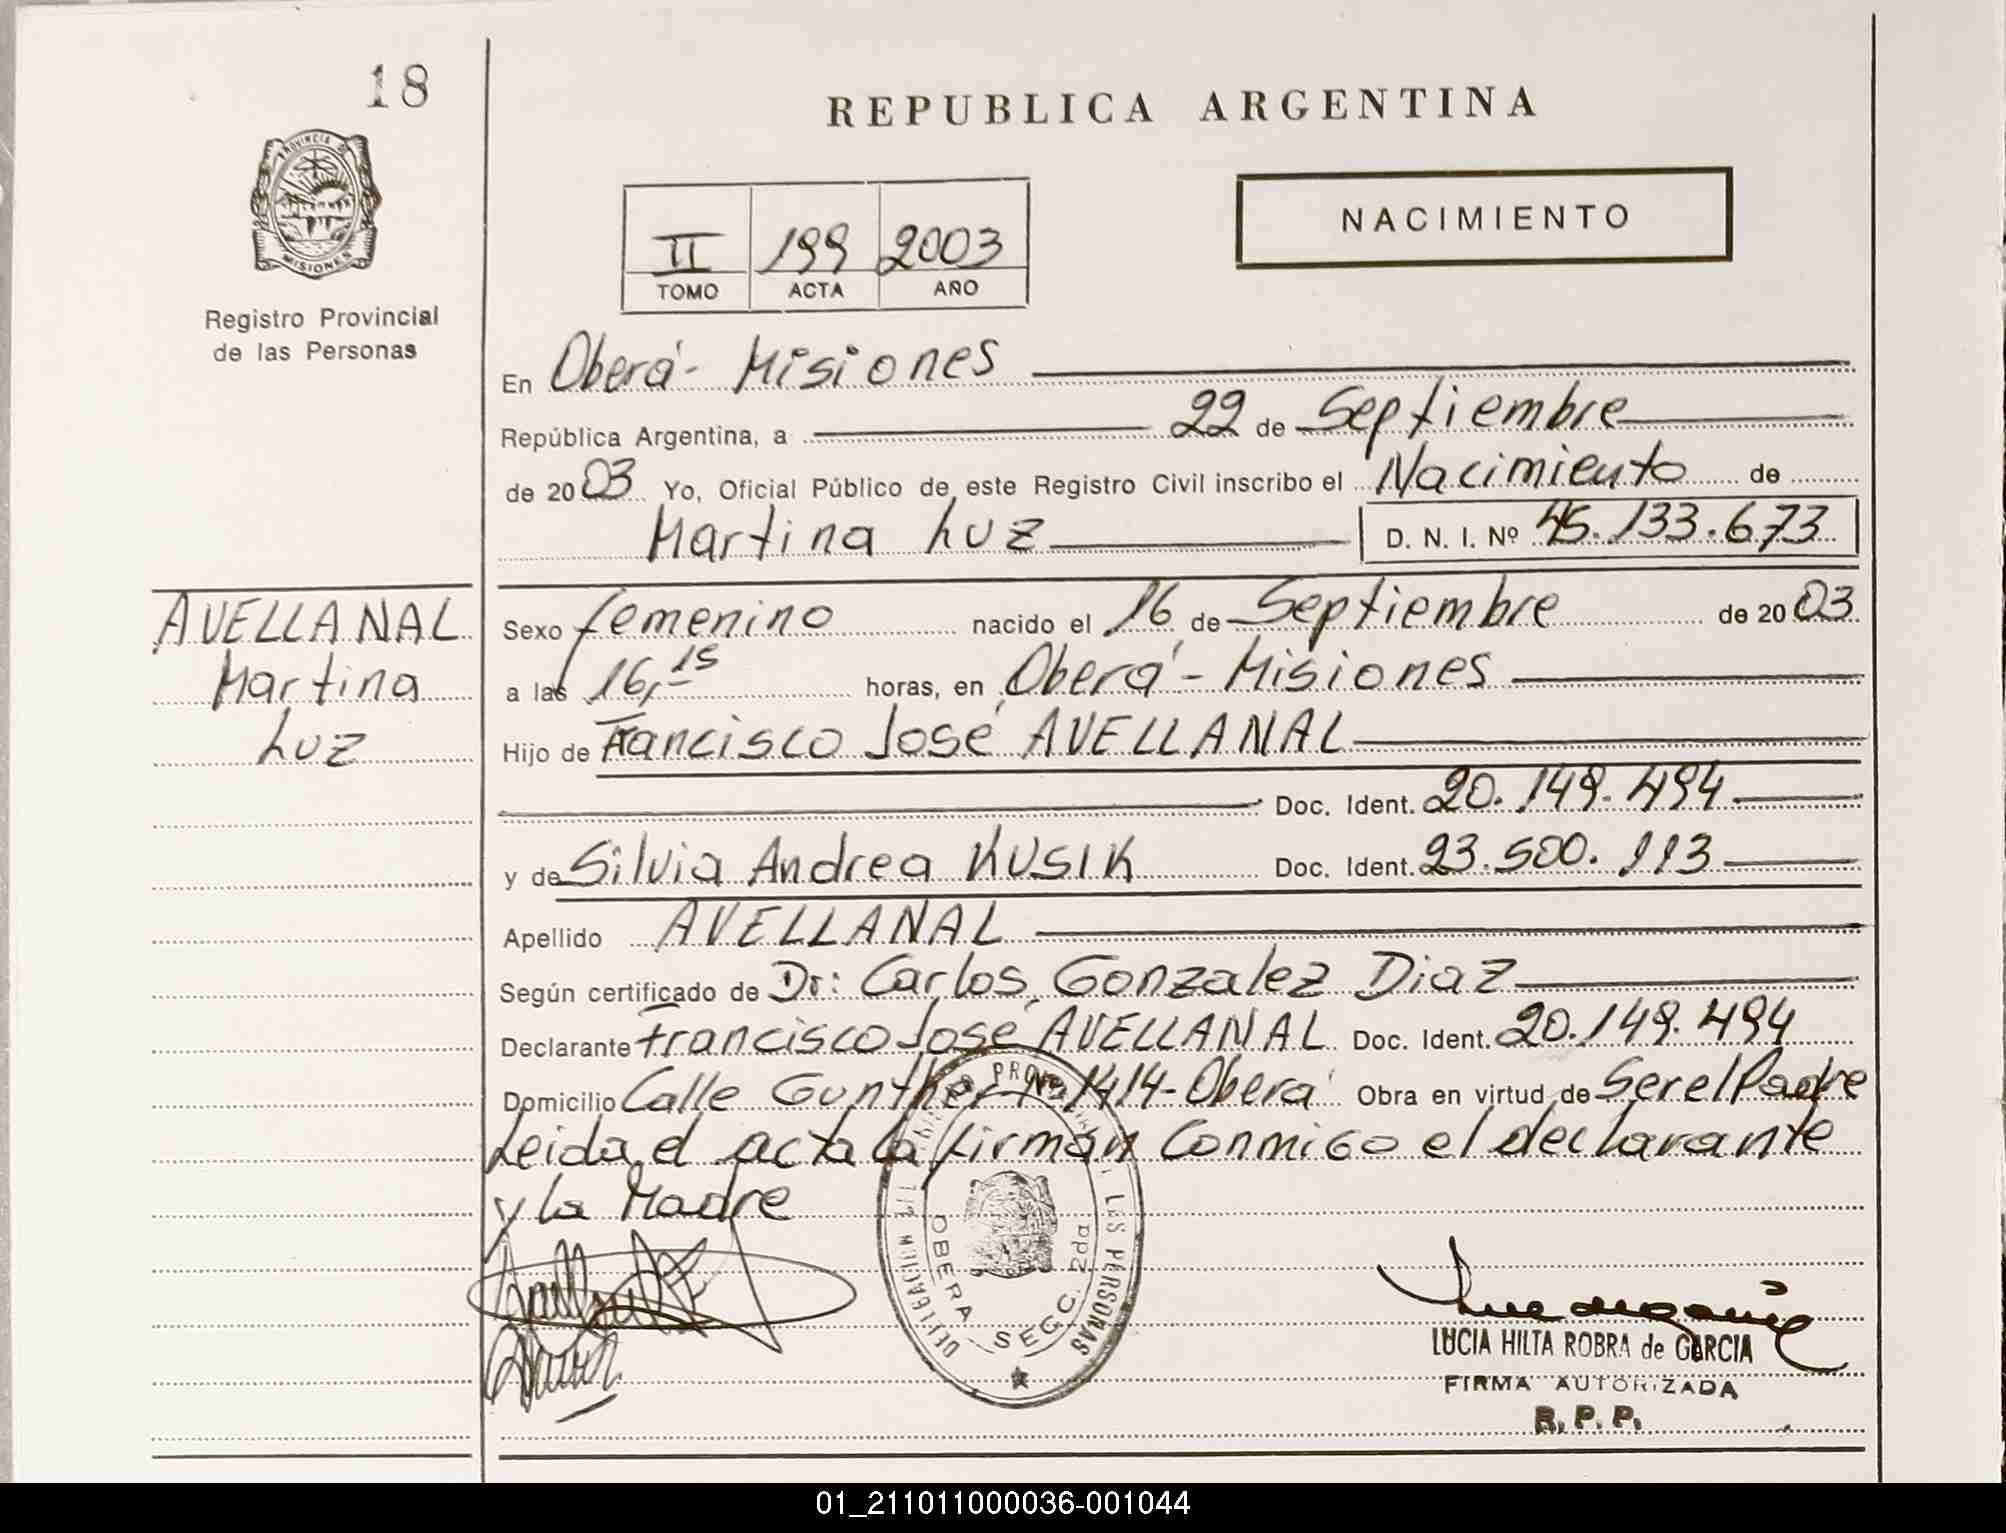 18
PROVINCIA DE
MISIONES
Registro Provincial
de las Personas
REPUBLICA ARGENTINA
II 199 2003
TOMO ACTA AÑO
NACIMIENTO
En Oberá - Misiones
República Argentina, a 22 de Septiembre
de 2003 Yo, Oficial Público de este Registro Civil inscribo el Nacimiento de
Martina Luz D. N. I. Nº 45.133.673
AVELLANAL
Martina
Luz
Sexo femenino nacido el 16 de Septiembre de 2003
a las 16,15 horas, en Oberá - Misiones
Hijo de Francisco José AVELLANAL
Doc. Ident. 20.149.494
y de Silvia Andrea KUSIK Doc. Ident. 23.500.113
Apellido AVELLANAL
Según certificado de Dr: Carlos Gonzalez Diaz
Declarante Francisco José AVELLANAL Doc. Ident. 20.149.494
Domicilio Calle Gunther Nº 1414 - Oberá Obra en virtud de Ser el Padre
Leida el acta la firman conmigo el declarante
y la Madre
LAS PERSONAS
OBERA SECC. 2da
LUCIA HILTA ROBRA de GARCIA
FIRMA AUTORIZADA
R. P. P.
01_211011000036-001044